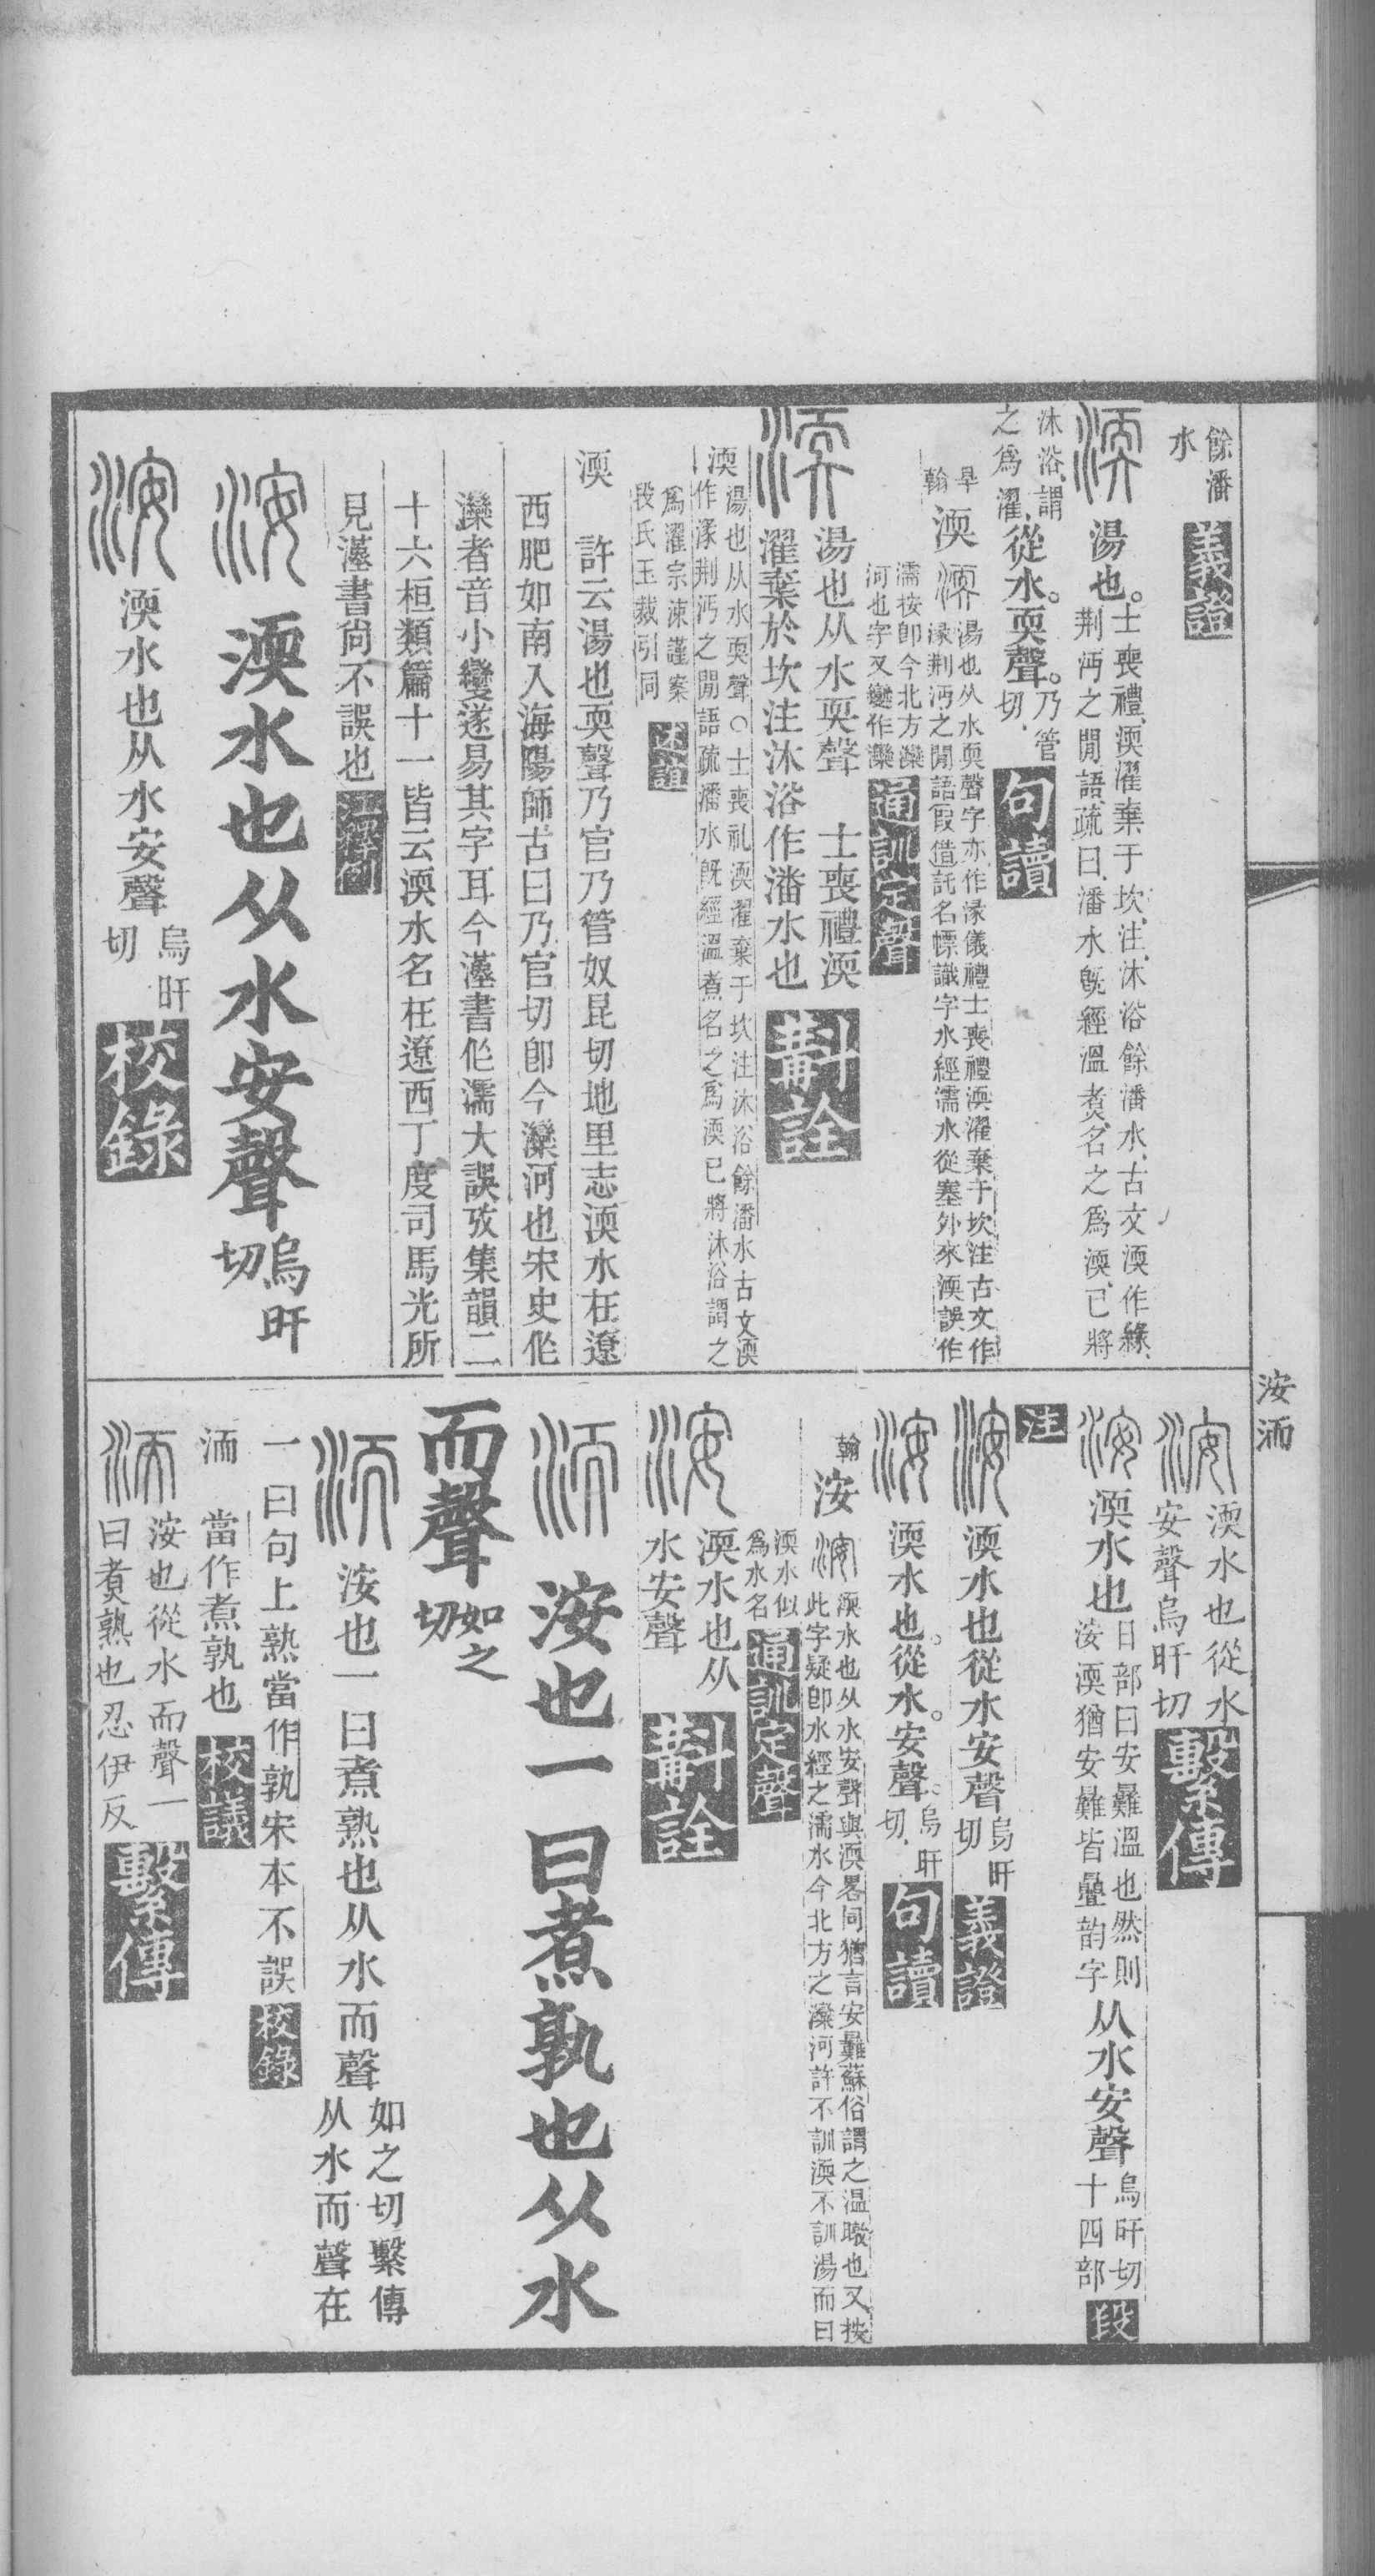 餘潘
水
義證
湯也。士喪禮、渜濯棄于坎、注、沐浴餘潘水、古文渜作緣、
荆沔之閒語、疏曰、潘水旣經溫煮、名之爲渜、已將
沐浴、謂
之爲濯、從水。耎聲。乃管
切、
句讀
渜
湯也从水耎聲字亦作湪儀禮士喪禮渜濯棄于坎注古文作
湪荆沔之閒語假借託名幖識字水經濡水從塞外來渜誤作
濡按卽今北方灤
河也字又變作灤
通訓定聲
湯也从水耎聲　士喪禮渜
濯棄於坎注沐浴作潘水也
斠詮
渜湯也从水耎聲○士喪礼渜濯棄于坎注沐浴餘潘水古文渜
作湪荆沔之閒語疏潘水旣經溫煮名之爲渜已將沐浴謂之
爲濯宗涑謹案
段氏玉裁引同
述誼
渜　許云湯也耎聲乃官乃管奴昆切地里志渜水在遼
西肥如南入海陽師古曰乃官切卽今灤河也宋史作
灤者音小變遂易其字耳今漢書作濡大誤攷集韻二
十六桓類篇十一皆云渜水名在遼西丁度司馬光所
見漢書尙不誤也
渜水也从水安聲烏旰
切
渜水也从水安聲烏旰
切
校錄
洝洏
渜水也從水
安聲烏旰切
繫傳
渜水也日部曰安㬮溫也然則
洝渜猶安㬮皆疊韵字从水安聲烏旰切
十四部
段
注
渜水也從水安聲烏旰
切
義證
渜水也。從水。安聲。烏旰
切、
句讀
翰
洝
渜水也从水安聲與渜畧同猶言安㬮蘇俗謂之温暾也又按
此字疑卽水經之濡水今北方之灤河許不訓渜不訓湯而曰
渜水似
爲水名
通訓定聲
渜水也从
水安聲
斠詮
洝也一曰煮孰也从水
而聲如之
切
洝也一曰煮熟也从水而聲如之切繫傳
从水而聲在
一曰句上熟當作孰宋本不誤
校錄
洏　當作煮孰也
校議
洝也從水而聲一
曰煮熟也忍伊反
繫傳